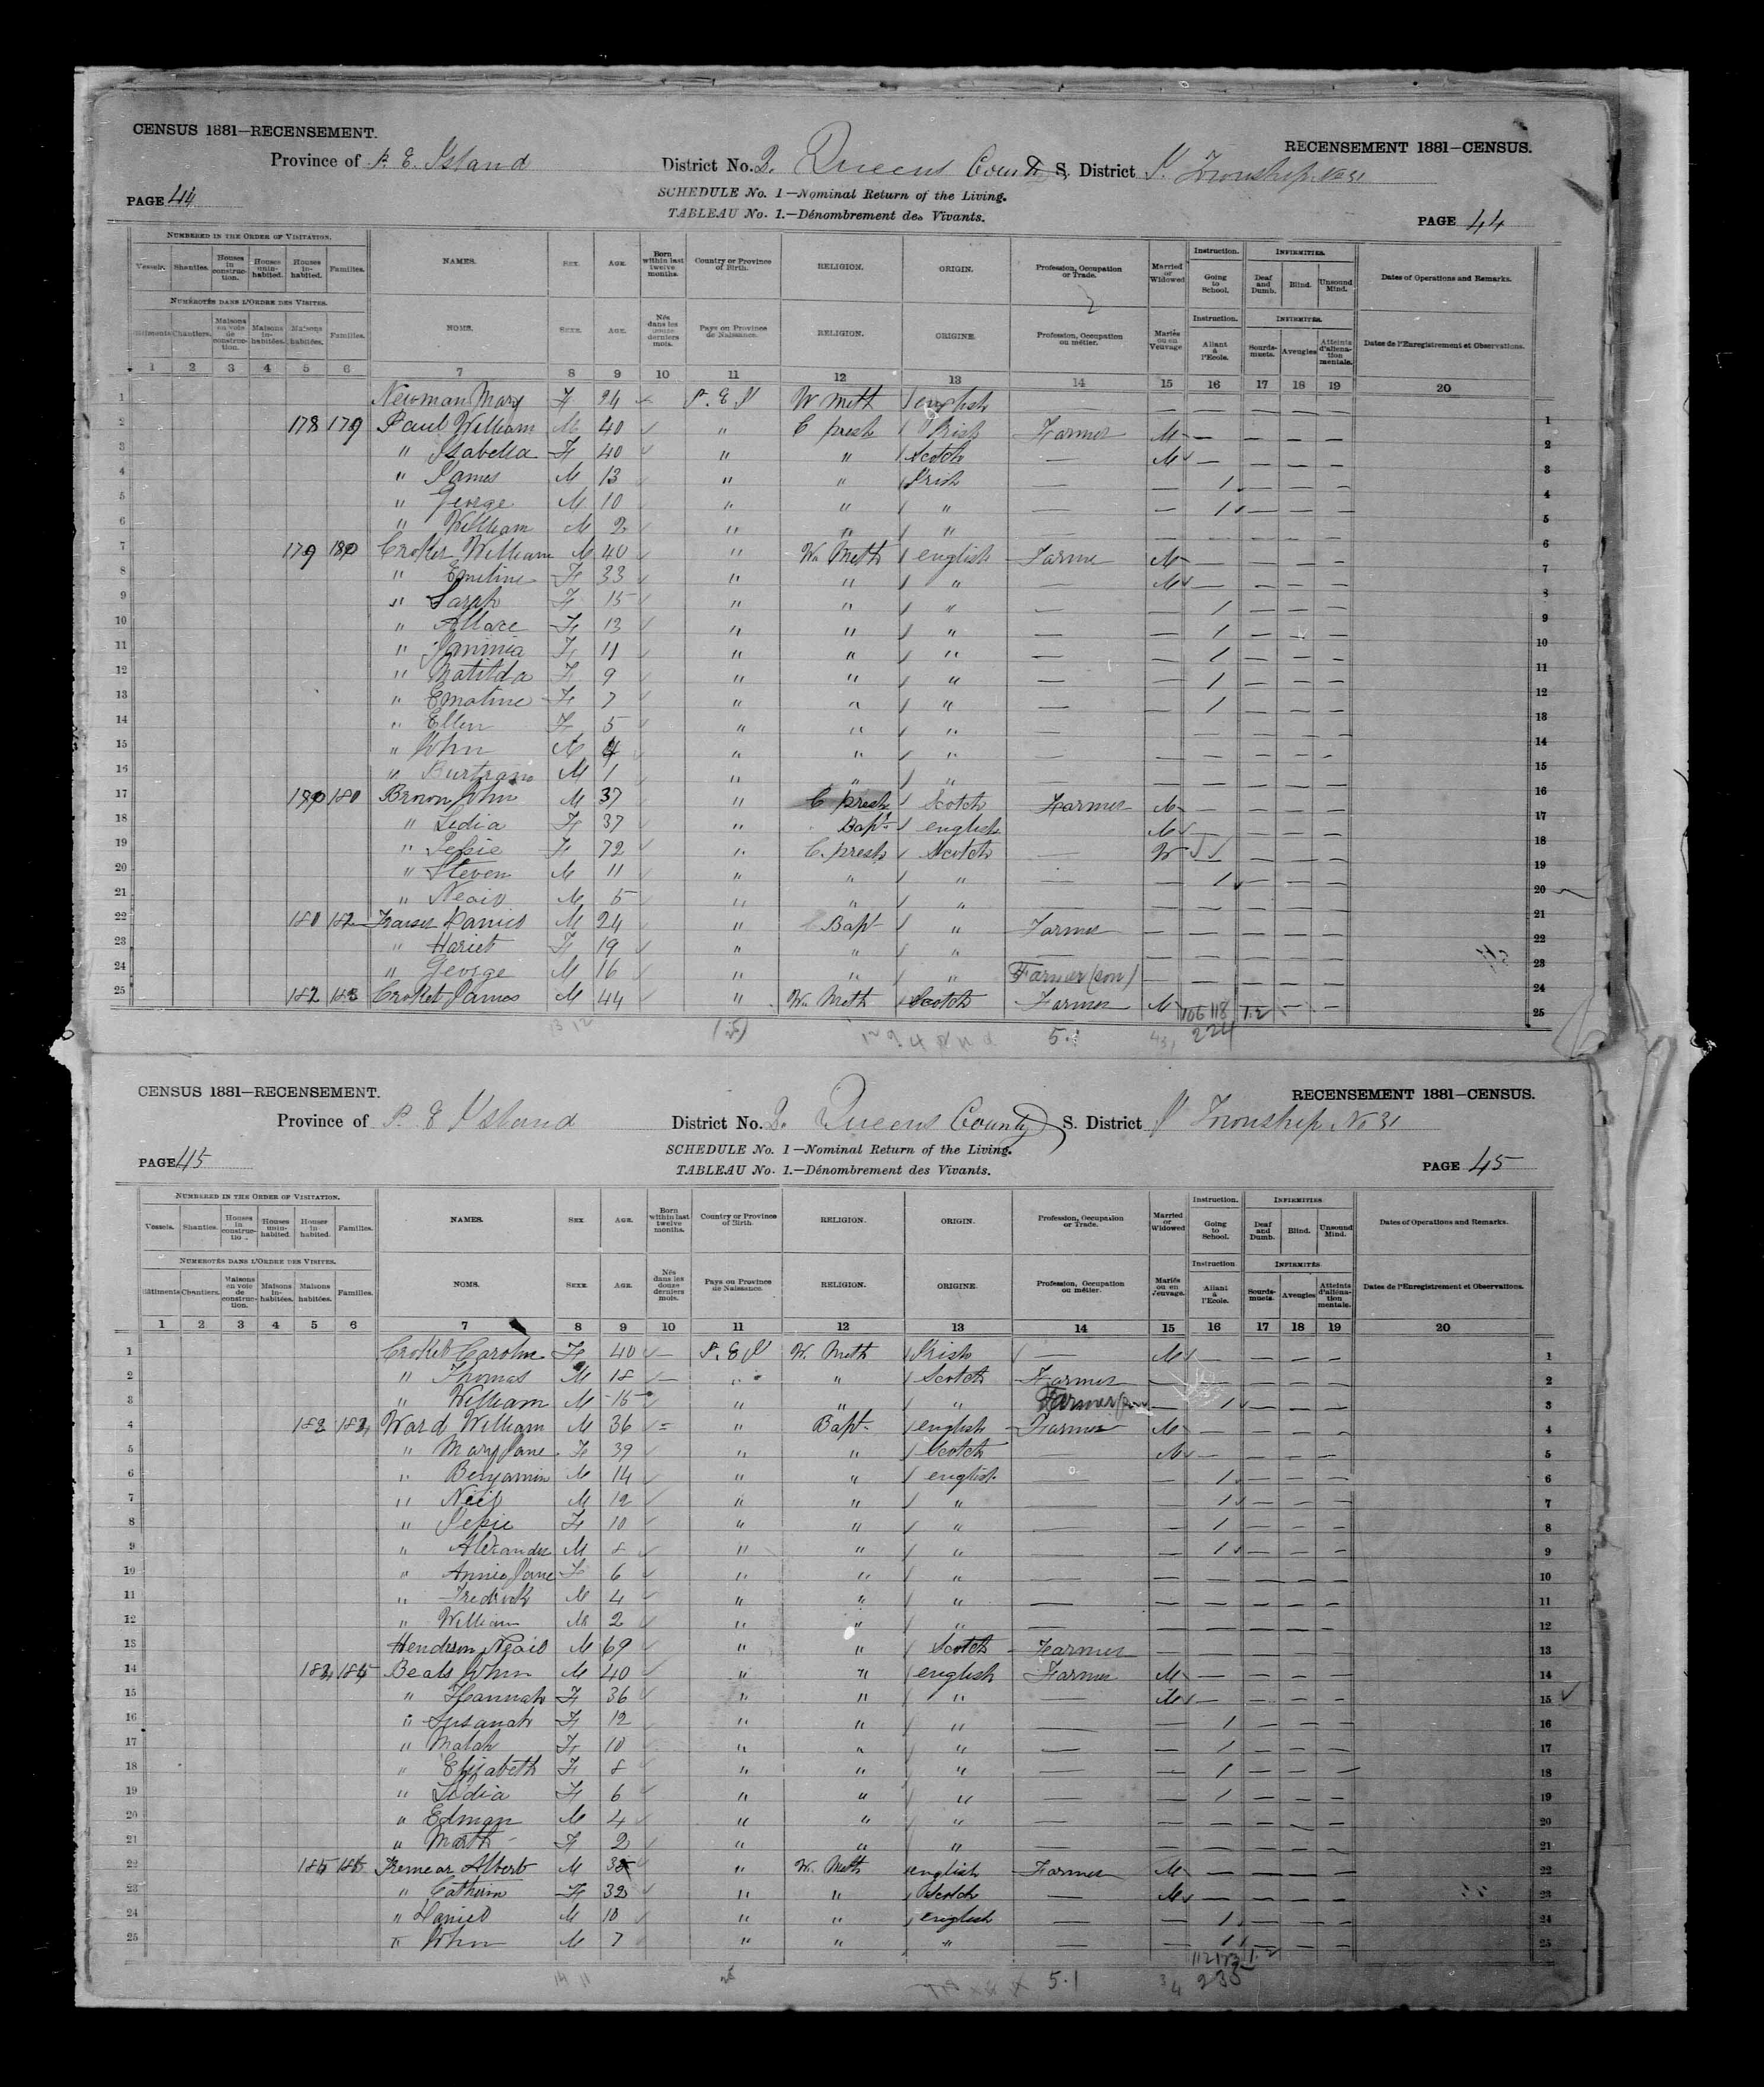 CENSUS 1881—RECENSEMENT. RECENSEMENT 1881—CENSUS.
Province of P. E. Island District No. 2. Queens County S. District Township No 31
SCHEDULE No. 1—Nominal Return of the Living.
PAGE 44 TABLEAU No. 1.—Dénombrement des Vivants. PAGE 44
NUMBERED IN THE ORDER OF VISITATION. NAMES. SEX. AGE. Born within last twelve months. Country or Province of Birth. RELIGION. ORIGIN. Profession, Occupation or Trade. Married or Widowed Instruction. Going to School. INFIRMITIES. Dates of Operations and Remarks.
Vessels. Shanties. Houses in construction. Houses uninhabited. Houses inhabited. Families. Deaf and Dumb. Blind. Unsound Mind.
NUMÉROTÉS DANS L'ORDRE DES VISITES. NOMS. SEXE. AGE. Nés dans les douze derniers mois. Pays ou Province de Naissance. RELIGION. ORIGINE. Profession, Occupation ou métier. Mariés ou en Veuvage Instruction. Allant à l'Ecole. INFIRMITÉS. Dates de l'Enregistrement et Observations.
Bâtiments Chantiers. Maisons en voie de construction. Maisons inhabitées. Maisons habitées. Familles. Sourds-muets. Aveugles Atteints d'aliénation mentale.
1 2 3 4 5 6 7 8 9 10 11 12 13 14 15 16 17 18 19 20
1 Newman Mary F 24 P. E I W Meth english — — — — — 1
2 178 179 Paul William M 40 " C presh Irish Farmer M — — — — 2
3 " Isabella F 40 " " Scotch — M — — — — 3
4 " James M 13 " " Irish — — 1 — — — 4
5 " George M 10 " " " — — 1 — — — 5
6 " William M 2 " " " — — — — — — 6
7 179 180 William M 40 " W. Meth english Farme M — — — — 7
8 " Emiline F 33 " " " — M — — — — 8
9 " Sarah F 15 " " " — — 1 — — — 9
10 " F 13 " " " — — 1 — — — 10
11 " F 11 " " " — — 1 — — — 11
12 " Matilda F 9 " " " — — 1 — — — 12
13 " F 7 " " " — — 1 — — — 13
14 " Ellen F 5 " " " — — — — — — 14
15 " John M 4 " " " — — — — — — 15
16 " M 1 " " " — — — — — — 16
17 180 Brown John M 37 " C presh Scotch Farmer M — — — — 17
18 " Lidia F 37 " Bapt english M — — — — 18
19 " Jessie F 72 " C. presh Scotch — W — — — 19
20 " Steven M 11 " " " — — 1 — — — 20
21 " M 5 " " " — — — — — — 21
22 181 182 M 24 " Bapt " Farmer — — — — — 22
23 " Hariet F 19 " " " — — — — — — 23
24 " George M 16 " " " Farmer (son) — — — — — 24
25 182 183 Croket James M 44 " W. Meth Scotch Farmer M 106 118 1.2 — — 25
224
5.1
CENSUS 1881—RECENSEMENT. RECENSEMENT 1881—CENSUS.
Province of P. E Island District No. 2. Queens County S. District Township No 31
SCHEDULE No. 1—Nominal Return of the Living.
PAGE 45 TABLEAU No. 1.—Dénombrement des Vivants. PAGE 45
NUMBERED IN THE ORDER OF VISITATION. NAMES. SEX. AGE. Born within last twelve months. Country or Province of Birth. RELIGION. ORIGIN. Profession, Occupation or Trade. Married or Widowed Instruction. Going to School. INFIRMITIES Dates of Operations and Remarks.
Vessels. Shanties. Houses in construction. Houses uninhabited. Houses inhabited. Families. Deaf and Dumb. Blind. Unsound Mind.
NUMÉROTÉS DANS L'ORDRE DES VISITES. NOMS. SEXE. AGE. Nés dans les douze derniers mois. Pays ou Province de Naissance. RELIGION. ORIGINE. Profession, Occupation ou métier. Mariés ou en Veuvage. Instruction Allant à l'Ecole. INFIRMITÉS Dates de l'Enregistrement et Observations.
Bâtiments Chantiers. Maisons en voie de construction. Maisons inhabitées. Maisons habitées. Familles. Sourds-muets. Aveugles Atteints d'aliénation mentale.
1 2 3 4 5 6 7 8 9 10 11 12 13 14 15 16 17 18 19 20
1 Croket Caroline F 40 P. E I W. Meth Irish — M — — — — 1
2 " Thomas M 18 " " Scotch Farmer — — — — 2
3 " William M 15 " " " Farmer — 1 — — — 3
4 183 Ward William M 36 " Bapt english Farmer M — — — — 4
5 " Mary Jane F 39 " " Scotch M — — — — 5
6 " Benjamin M 14 " " english — — 1 — — — 6
7 " Neil M 12 " " " — — 1 — — — 7
8 " Jessie F 10 " " " — — 1 — — — 8
9 " M 8 " " " — — 1 — — — 9
10 " Annie Jane F 6 " " " — — — — — — 10
11 " Fredrick M 4 " " " — — — — — — 11
12 " William M 2 " " " — — — — — — 12
13 M 69 " " Scotch Farmer — — — — — 13
14 184 185 Beals John M 40 " " english Farmer M — — — — 14
15 " Hannah F 36 " " " — M — — — — 15
16 " Susanah F 12 " " " — — 1 — — — 16
17 " F 10 " " " — — 1 — — — 17
18 " Elizabeth F 8 " " " — — 1 — — — 18
19 " Lidia F 6 " " " — — 1 — — — 19
20 " M 4 " " " — — — — — — 20
21 " F 2 " " " — — — — — — 21
22 185 Albert M " W. Meth english Farmer M — — — — 22
23 " F 32 " " Scotch — M — — — — 23
24 " Daniel M 10 " " english — — 1 — — — 24
25 " John M 7 " " " — — 1 — — — 25
5.1 235